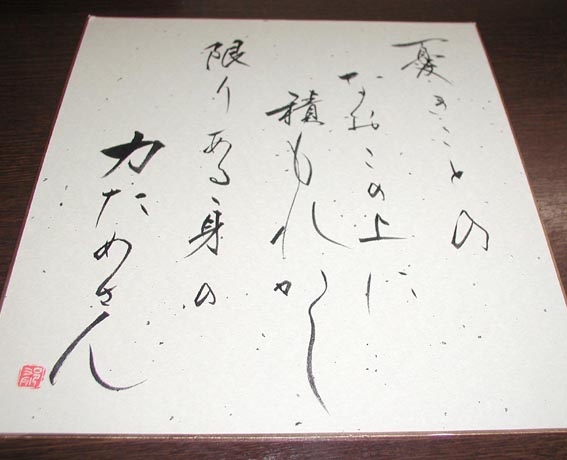 憂きことの
なおこの上に
積もれかし
限りある身の
力ためさん